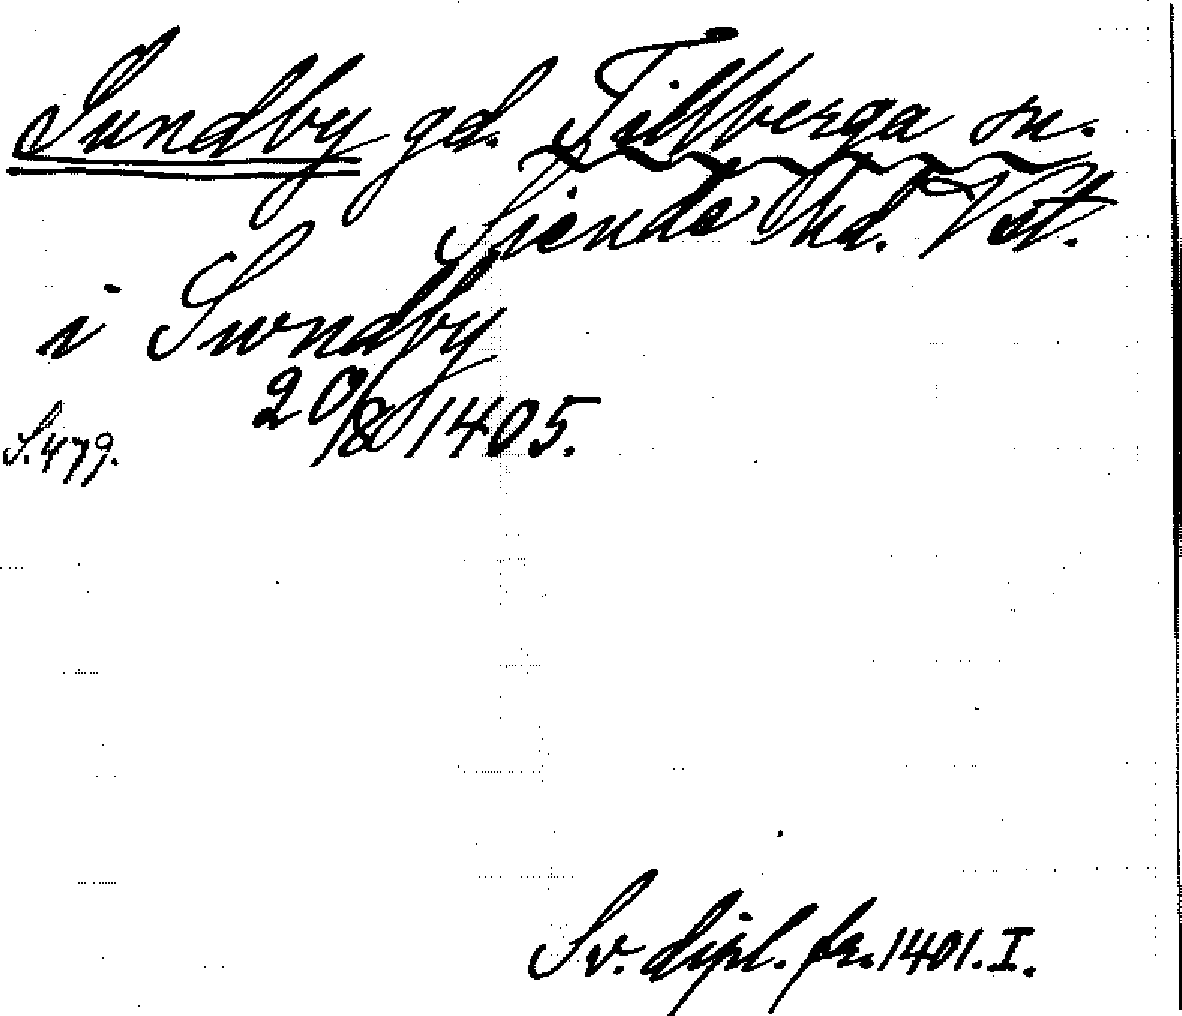 Sundby gd. Tillberga sn.
Siende hd. Vstl.
i Sundby
20/8 1405.
S. 479.
Sv. dipl. fr. 1401. I.